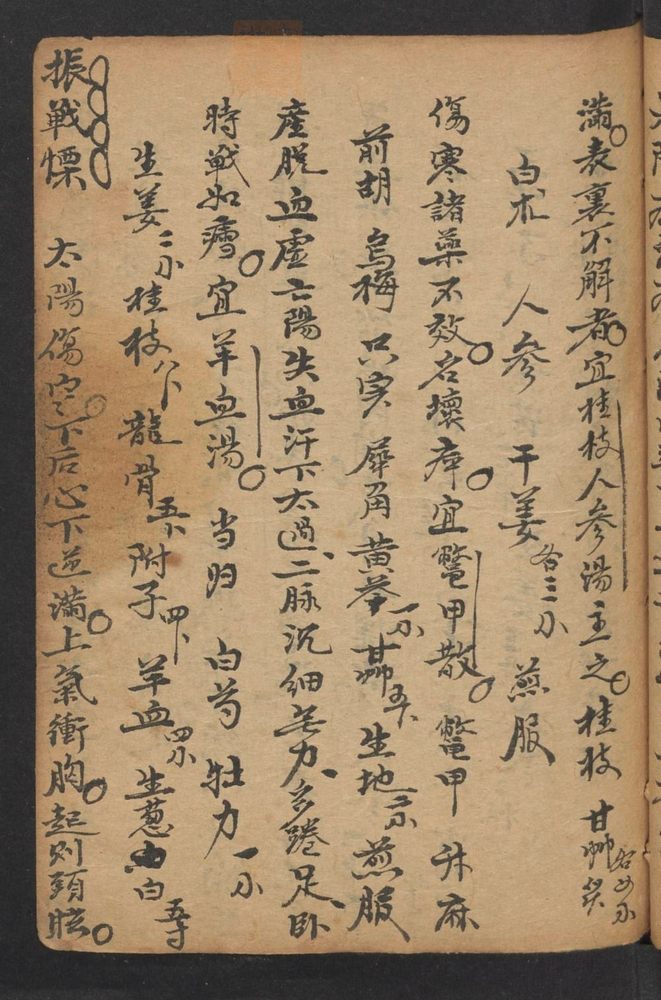 滿表裏不解者宜桂枝人參湯主之桂枝 甘艸炙各四小
白朮 人參 干姜各三小 煎服
傷寒諸藥不效名壞症宜鱉甲散 鱉甲 升麻
前胡 烏梅 只实 犀角 黄芩一小 甘艸五卜 生地二小 煎服
產脫血虛亡陽失血汗下太過二脉沉細無力多踡足卧
時戰如瘧宜羊血湯 当归 白芍 牡力一小
生姜二小 桂枝八卜 龍骨五卜 附子四卜 羊血四小 生葱白五寸
振戰慄 太陽傷寒下后心下逆滿上氣衝胸起则頭眩